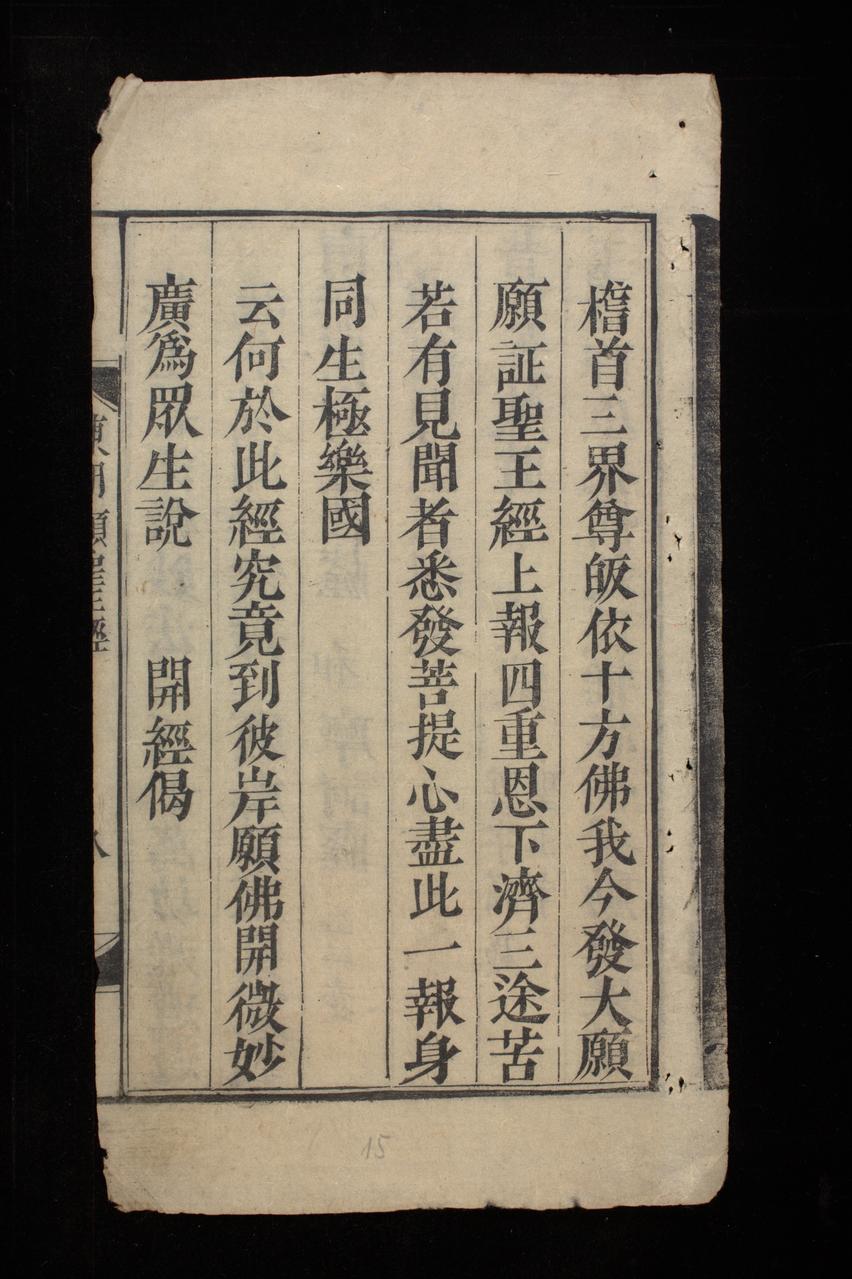 稽首三界尊皈依十方佛我今發大願
願証聖王經上報四重恩下濟三途苦
若有見聞者悉發菩提心盡此一報身
同生極樂國
云何於此經究竟到彼岸願佛開微妙
廣爲眾生說 開經偈
聖經
八
15